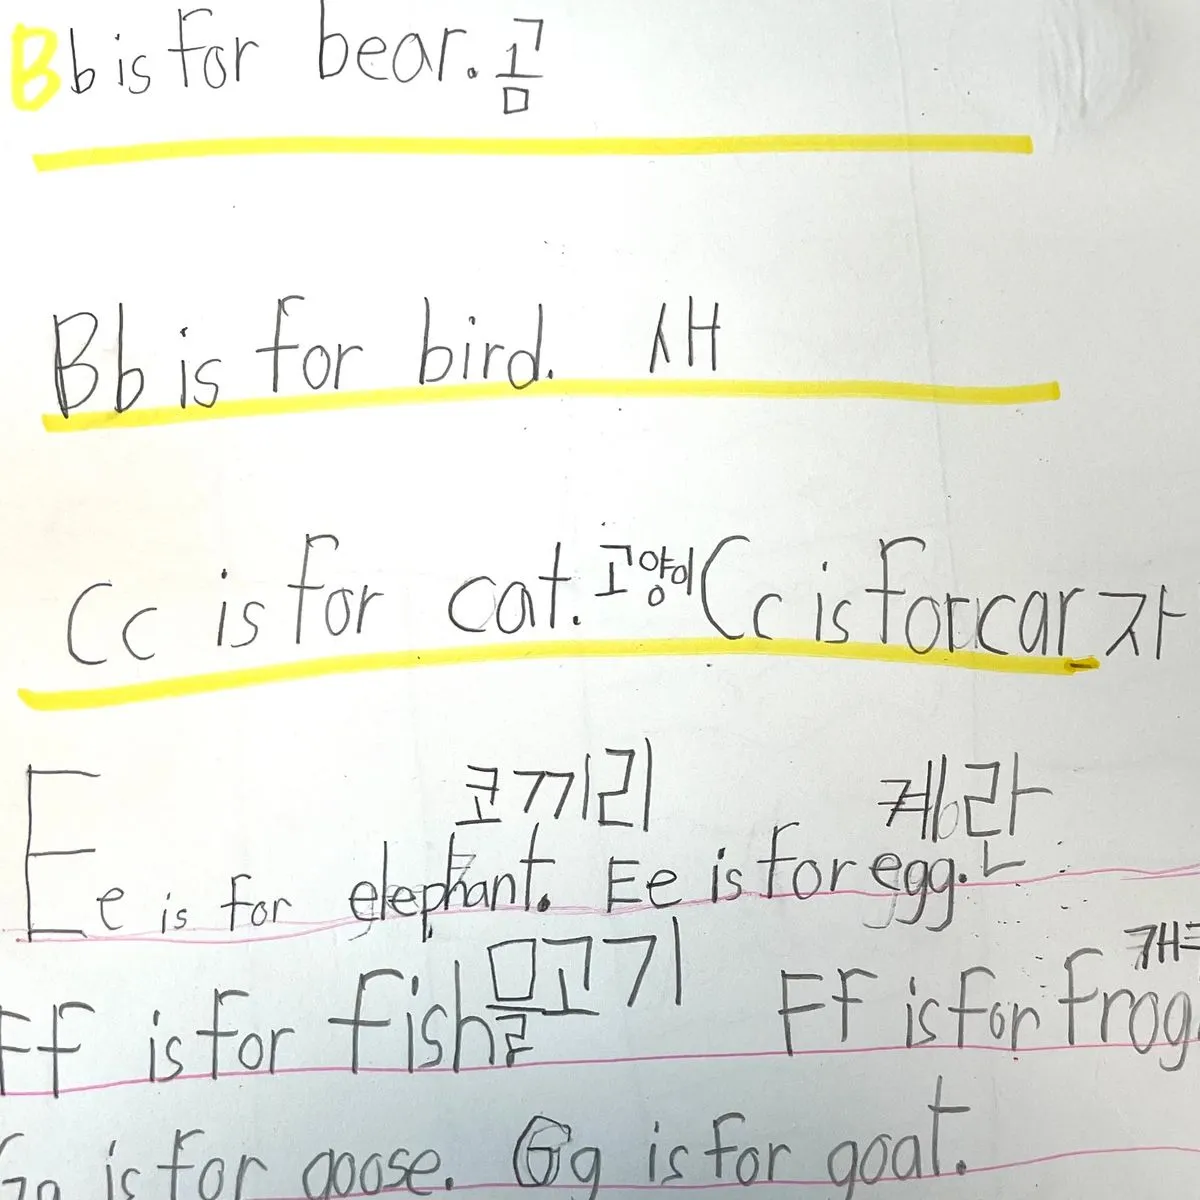 Bb is for bear.곰
Bb is for bird. 새
Cc is for cat. 고양이 Cc is for car 자
코끼리 계란
Ee is for elephant. Ee is for egg.
물고기
Ff is for fish Ff is for frog
Gg is for goose. Gg is for goat.